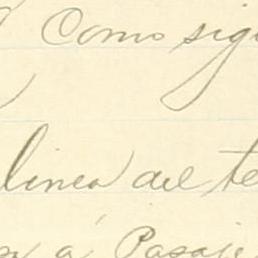 Como sig
linea del te
y á Pasaje